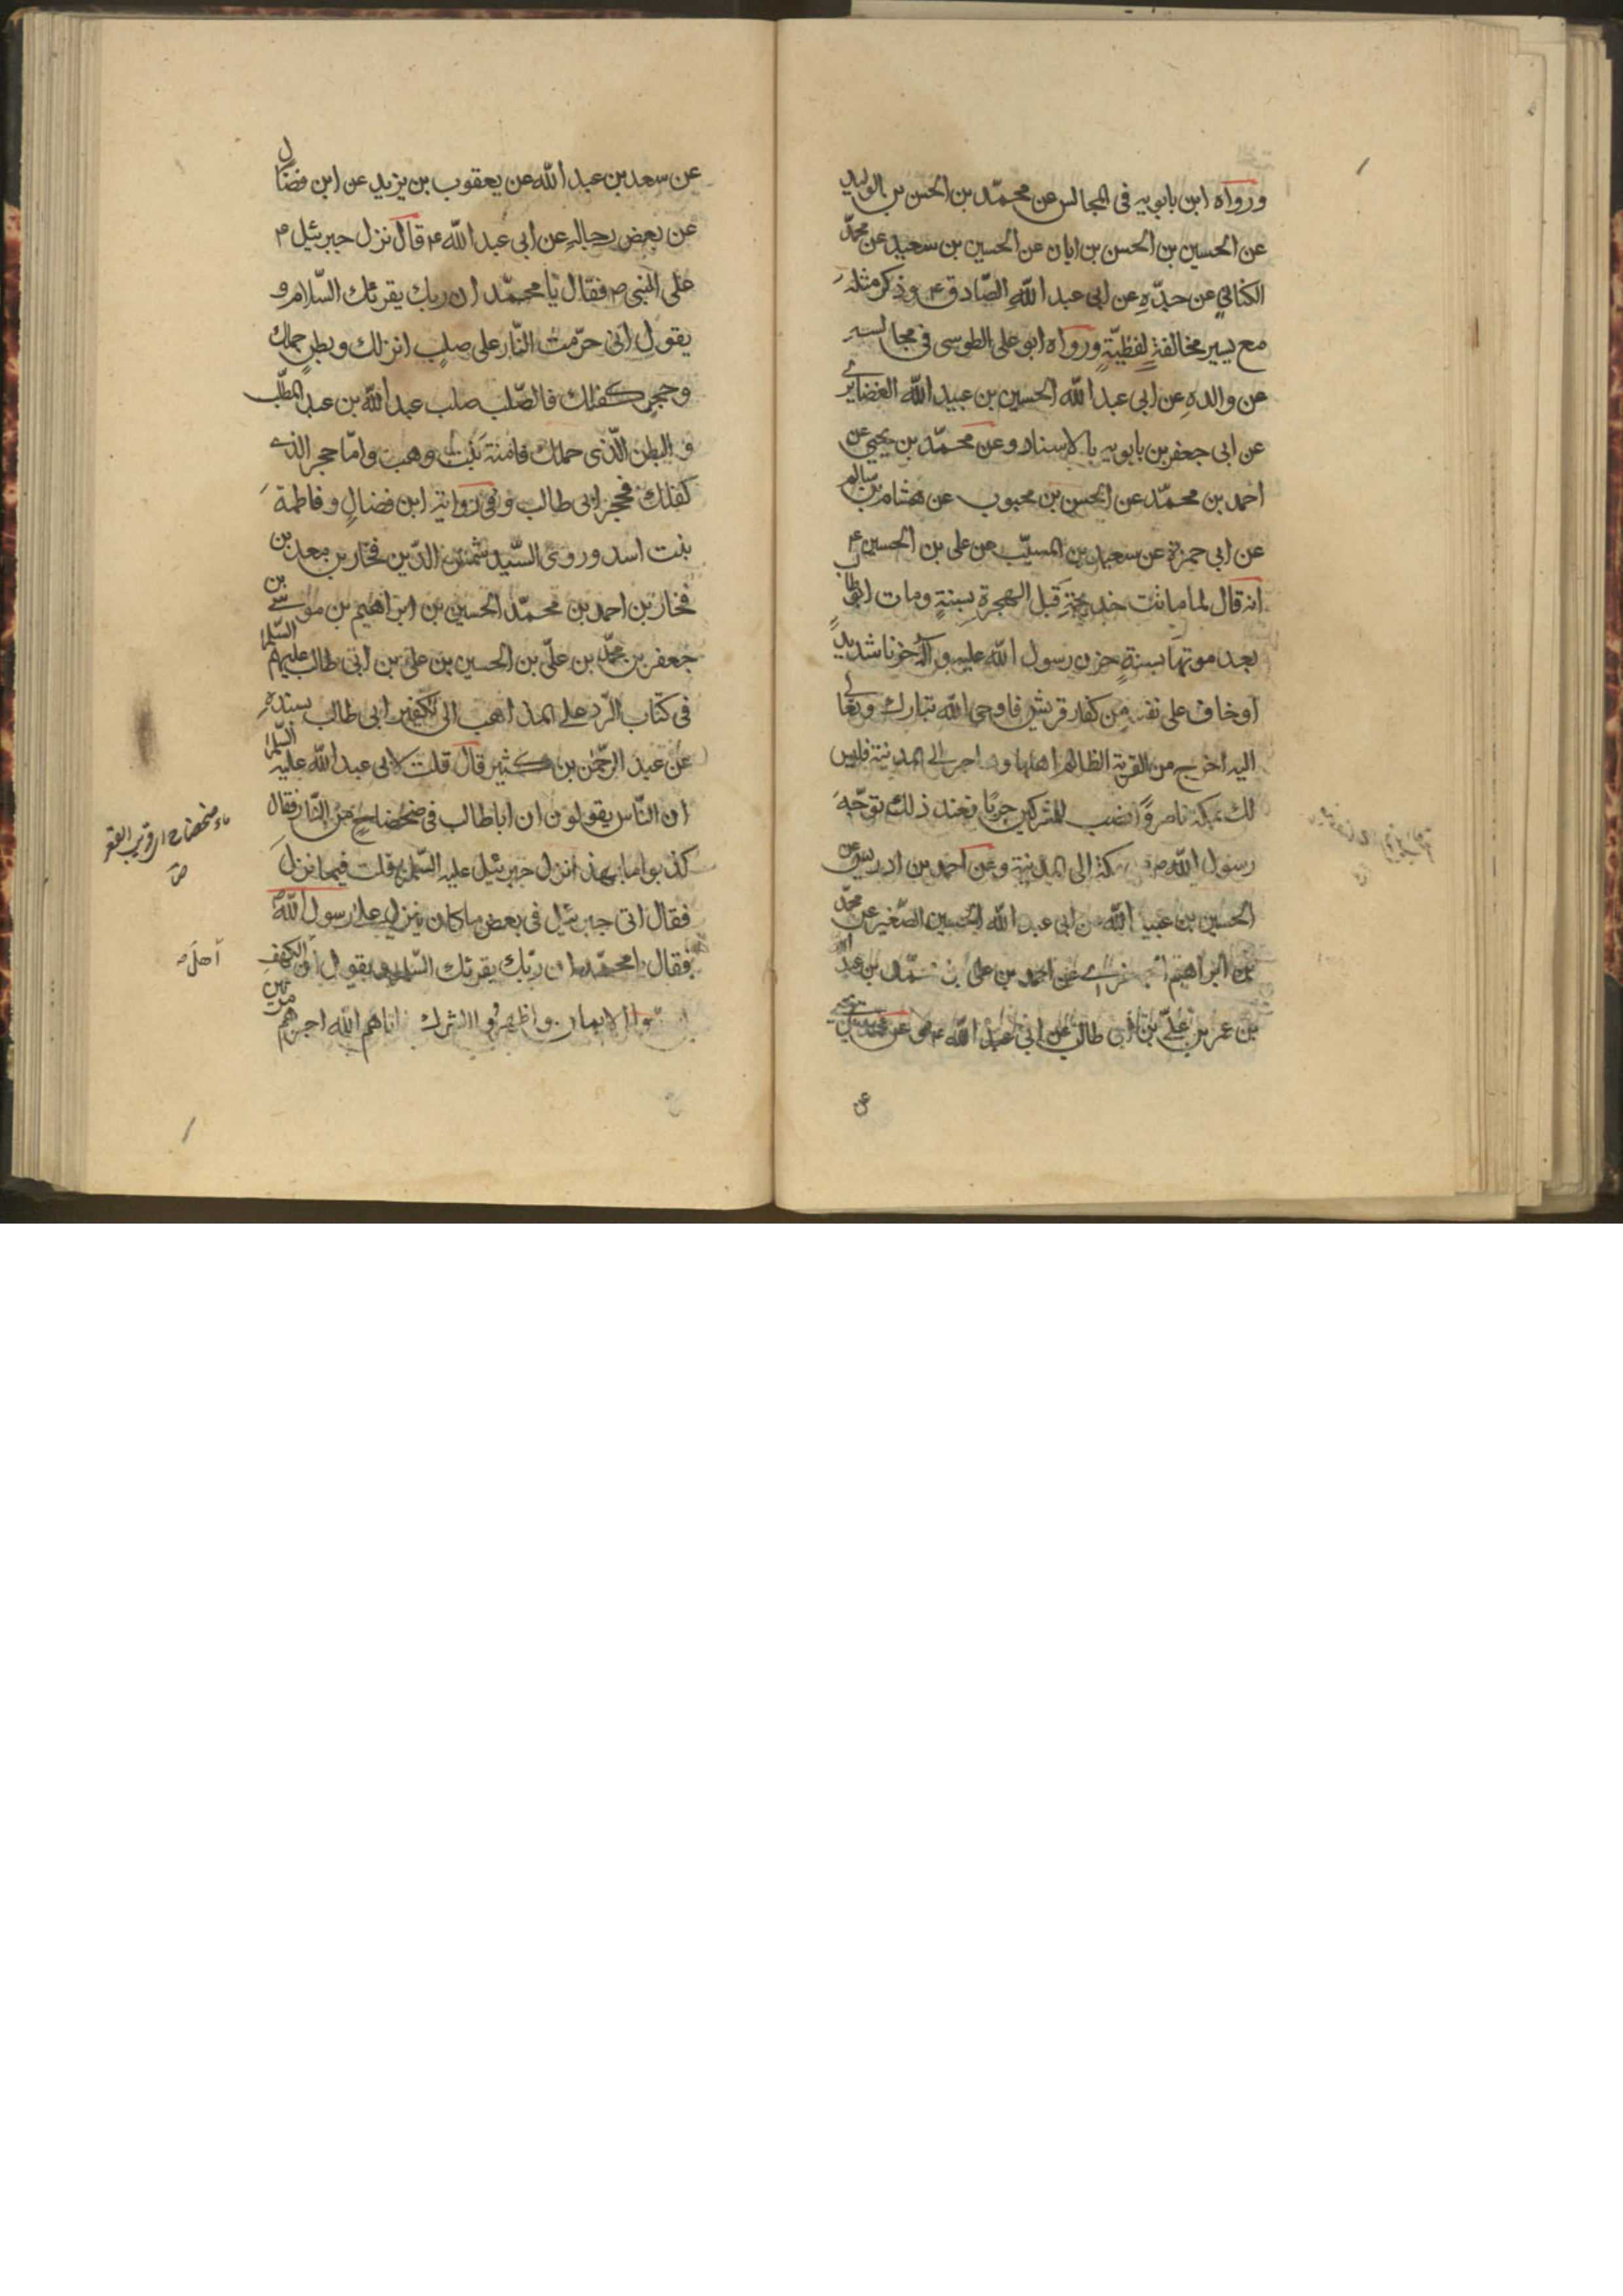 ورواه ابن بابويه فى المجالس عن محمّد بن الحسن بن الوليد
عن الحسين بن الحسن بن ابان عن الحسين بن سعيد عن محمّد
الكنانى عن جدّه عن ابى عبد الله الصّادق ع وذكر مثله
مع يسير مخالفة لفظيّة ورواه ابو على الطوسى فى مجالسه
عن والده عن ابى عبد الله الحسين بن عبيد الله الغضائرى
عن ابى جعفر بن بابويه بالاسناد وعن محمّد بن يحيى عن
احمد بن محمّد عن الحسن بن محبوب عن هشام بن سالم
عن ابى حمزة عن سعيد بن المسيّب عن على بن الحسين ع
انه قال لما ماتت خديجة قبل الهجرة بسنة ومات ابوطالب
بعد موتها بسنة حزن رسول الله عليه وآله حزنا شديد
اوخاف على نفسه من كفار قريش فاوحى الله تبارك وتعالى
اليه اخرج من القرية الظالم اهلها وهاجر الى المدينة فليس
لك بمكة ناصر وانصب للمشركين حربا فعند ذلك توجّه
رسول الله ص مكة الى المدينة وعن احمد بن ادريس عن
الحسين بن عبيد الله عن ابى عبد الله الحسين الصّغير عن محمّد
بن ابراهيم عن احمد بن على بن محمّد بن عبد الله
بن عمر بن علىّ بن ابى طالب عن ابى عبد الله ع وعن محمد بن يحيى
عن
عن سعد بن عبد الله عن يعقوب بن يزيد عن ابن فضال
عن بعض رجاله عن ابى عبد الله ع قال نزل جبرئيل ع
على النبى ص فقال يا محمّد ان ربك يقرئك السّلام و
يقول انى حرّمت النّار على صلب انزلك وبطن حملك
وحجر كفلك فالصّلب صلب عبد الله بن عبد المطّلب
والبطن الّذى حملك فامنة بنت وهب وامّا حجر الذى
كفلك فحجر ابى طالب وفى رواية ابن فضال وفاطمة
بنت اسد وروى السّيد شمس الدّين فخار بن معد بن
فخار بن احمد بن محمّد الحسين بن ابراهيم بن موسى بن
جعفر بن محمّد بن علىّ بن الحسين بن على بن ابى طالب عليهم السّلم
فى كتاب الرّد على الذاهب الى تكفير ابى طالب بسنده
عن عبد الرّحمن بن كثير قال قلت لابى عبد الله عليه السّلم
ان النّاس يقولون ان اباطالب فى ضحضاح من النّار فقال
كذبوا ما بهذ انزل جبرئيل عليه السّلم قلت فيما نزل
فقال اتى جبرئيل فى بعض ما كان ينزل على رسول الله ص
فقال يا محمّد ان ربّك يقرئك السّلم ويقول ان الكهف
الايمان واظهروا الشرك اتاهم الله اجرهم مرتين
ماء ضحضاح اى قريب القعر
ص
اهل